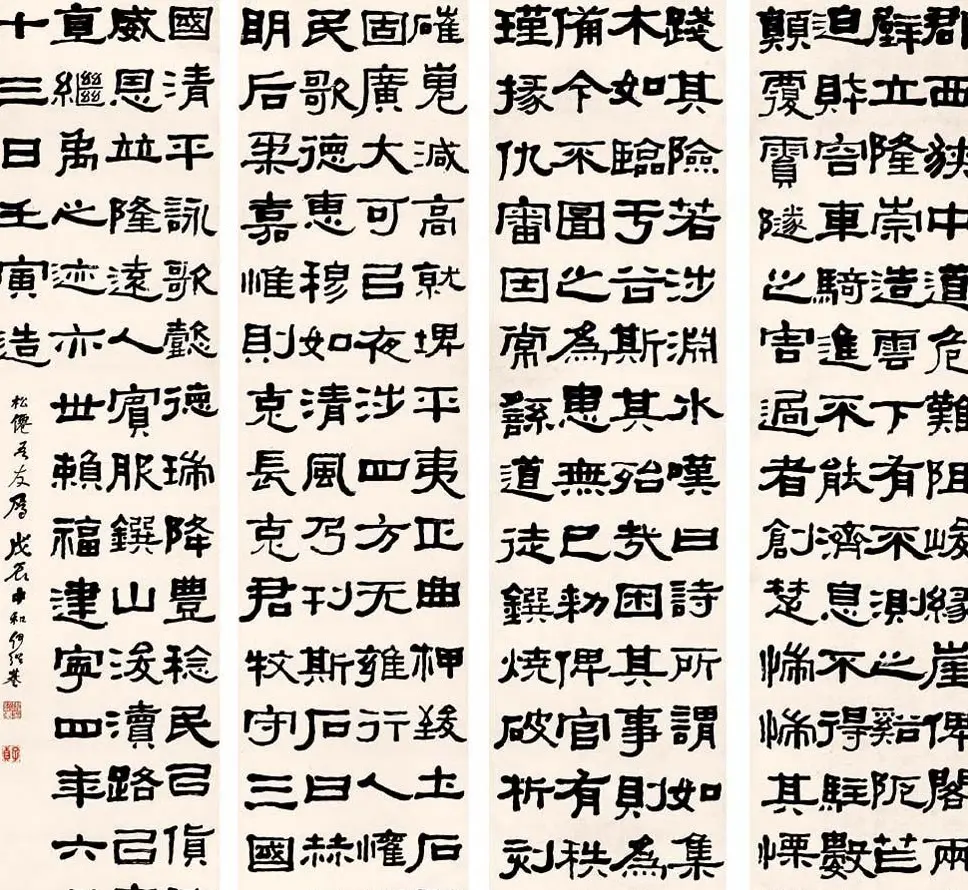 郡西狹中道危難阻峻緣崖俾閣兩
壁立隆崇造雲下有不測之谿阨芒
迫財容車騎進不能濟息不得駐數
顛覆霣隧之害過者創楚惴惴其慄
踐其險若涉淵冰嘆曰詩所謂如集
木如臨于谷斯其殆哉困其事則為
備今不圖之為患無已敕俾官有秩
瑾掾仇審因常繇道徒鐉燒破析刻
磪嵬減高就埤平夷正曲柙致土石
固廣大可已夜涉四方无雍行人懽
民歌德惠穆如清風乃刊斯石曰赫
明后柔嘉惟則克長克君牧守三國
國清平詠歌懿德瑞降豐稔民已貨
威恩並隆遠人賓服鐉山浚瀆路已
直繼禹之迹亦世賴福建寧四年六
十三日壬寅造
松僊吾友屬 戊辰中和何紹基